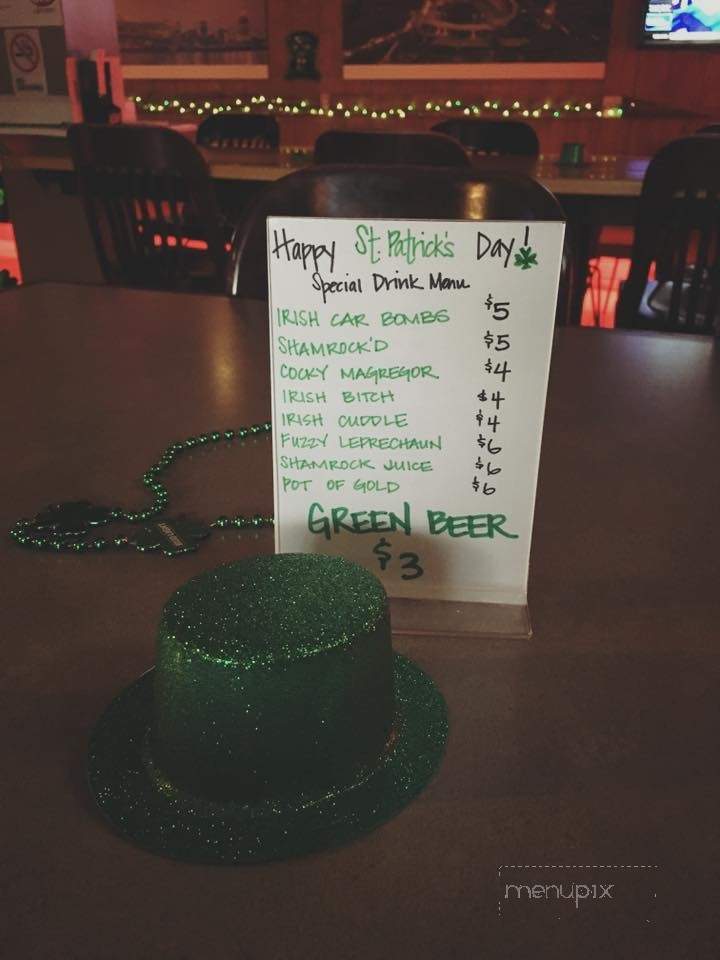 Happy St. Patrick's Day!
Special Drink Menu
IRISH CAR BOMBS $5
SHAMROCK'D $5
COCKY MAGREGOR $4
IRISH BITCH $4
IRISH CUDDLE $4
FUZZY LEPRECHAUN $6
SHAMROCK JUICE $6
POT OF GOLD $6
GREEN BEER
$3
menupix